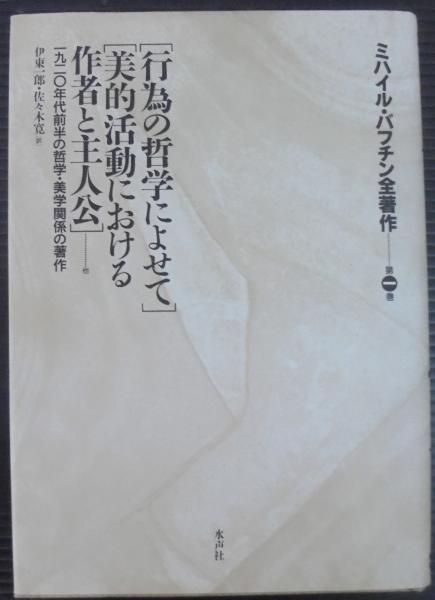 ミハイル・バフチン全著作―――第一巻
[行為の哲学によせて]
[美的活動における
作者と主人公]………他
一九二〇年代前半の哲学・美学関係の著作
伊東一郎・佐々木寛 訳
水声社